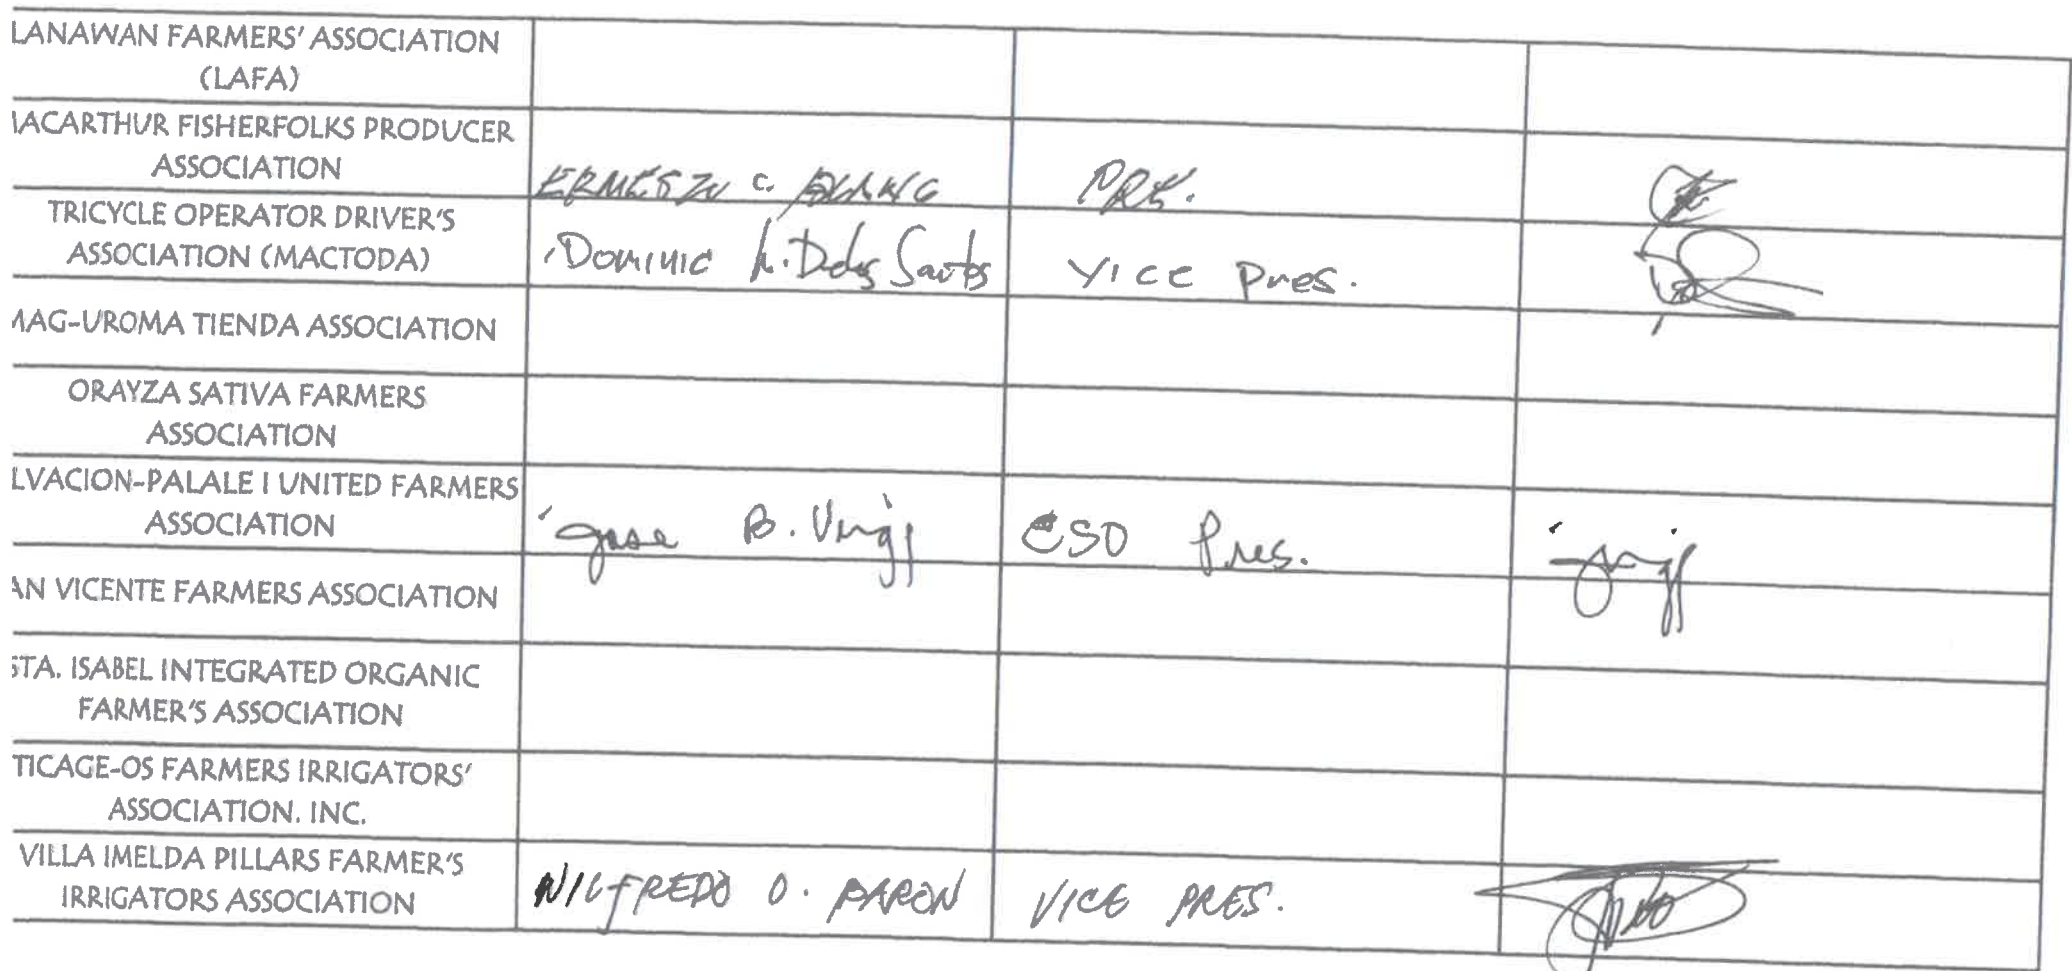 LANAWAN FARMERS' ASSOCIATION
(LAFA)
ACARTHUR FISHERFOLKS PRODUCER
ASSOCIATION
C. PRES.
TRICYCLE OPERATOR DRIVER'S
ASSOCIATION (MACTODA)
DOMINIC L. Delos Santos VICE Pres.
MAG-UROMA TIENDA ASSOCIATION
ORAYZA SATIVA FARMERS
ASSOCIATION
LVACION-PALALE I UNITED FARMERS
ASSOCIATION
Jose B. CSO Pres.
AN VICENTE FARMERS ASSOCIATION
STA. ISABEL INTEGRATED ORGANIC
FARMER'S ASSOCIATION
TICAGE-OS FARMERS IRRIGATORS'
ASSOCIATION. INC.
VILLA IMELDA PILLARS FARMER'S
IRRIGATORS ASSOCIATION
WILFREDO O. BARON VICE PRES.